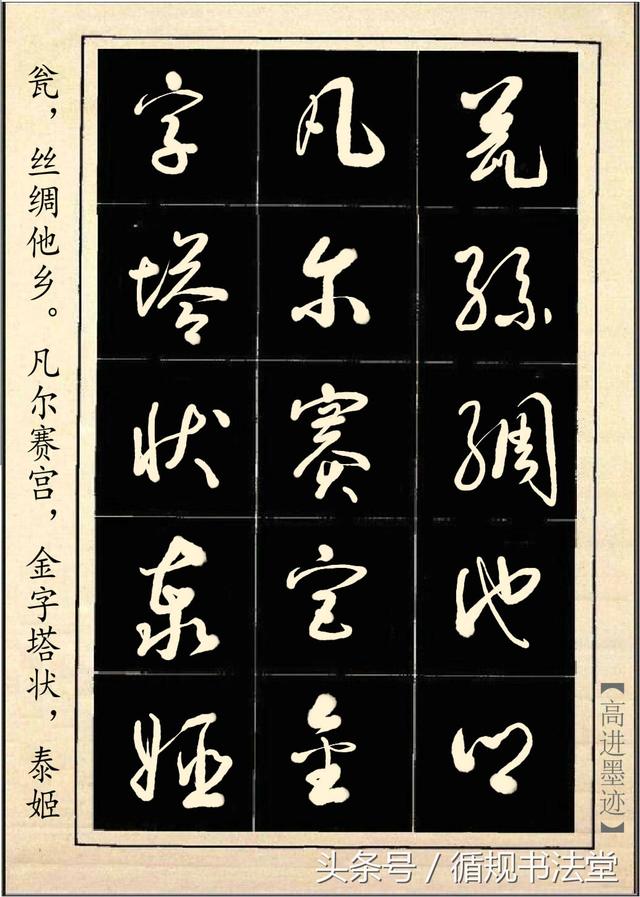 瓮丝绸他乡
凡尔赛宫金
字塔状泰姬
瓮，丝绸他乡。凡尔赛宫，金字塔状，泰姬
【高进墨迹】
头条号 / 循规书法堂